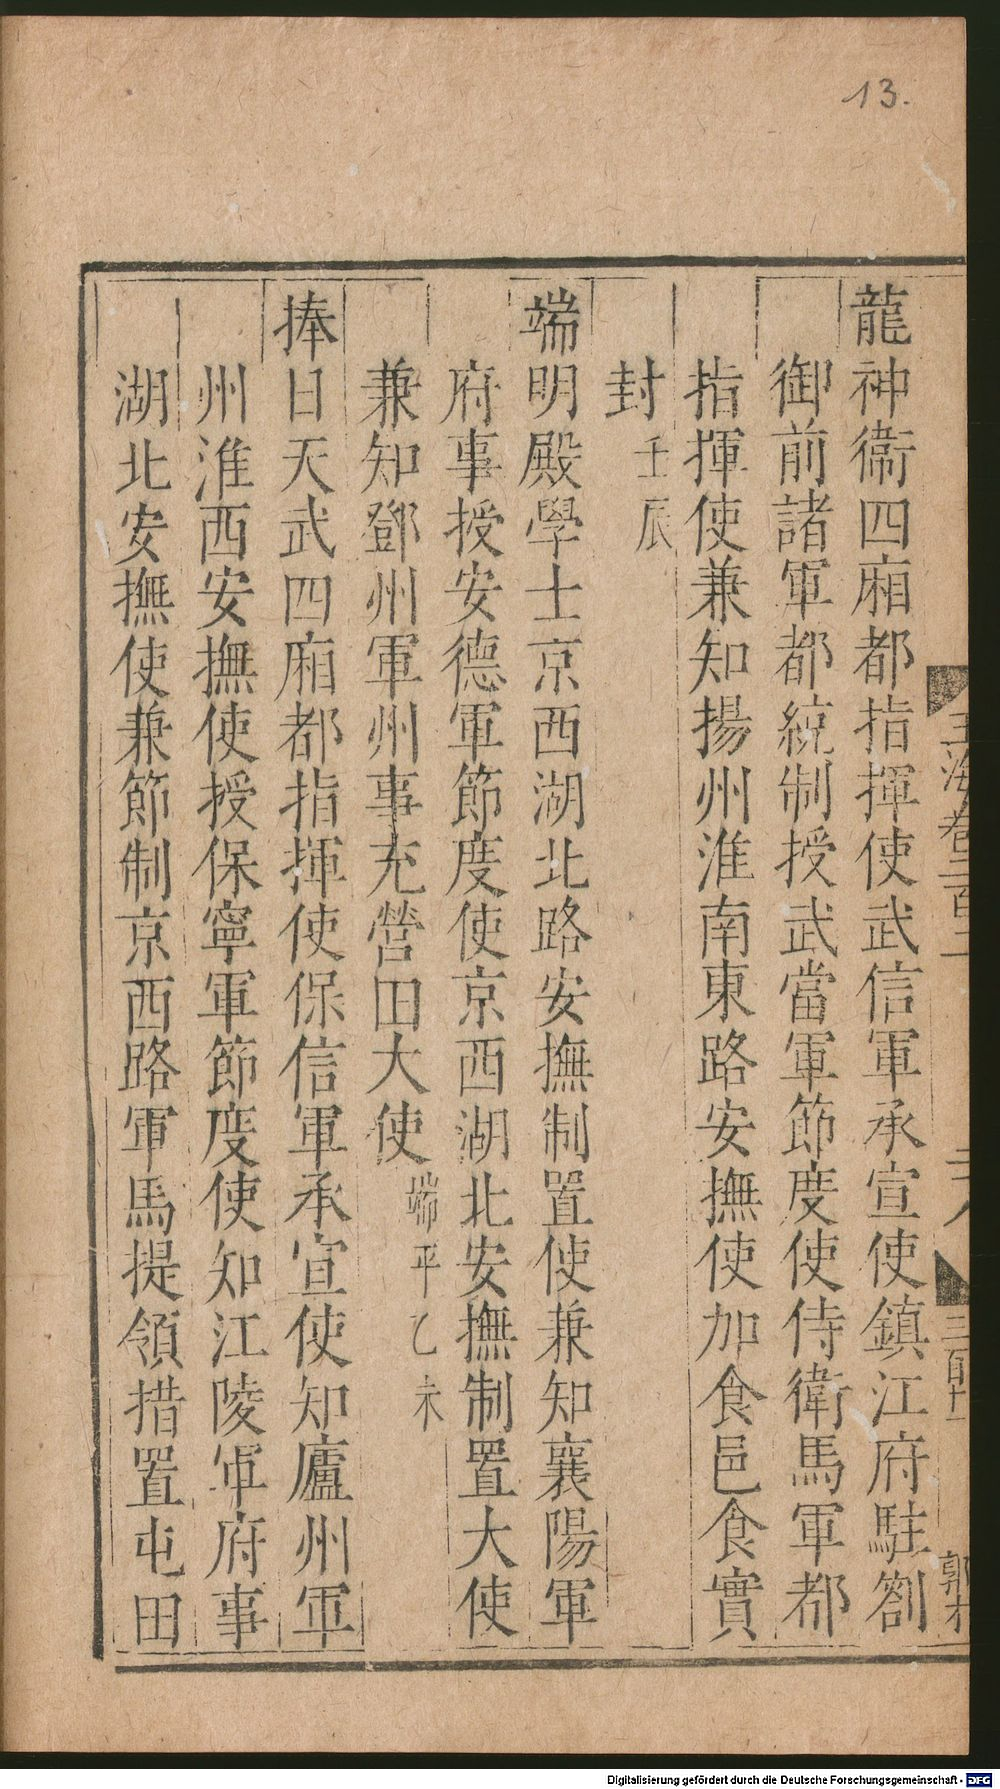 13.
玉海卷二百二
二八
三百十一
郭才
龍神衛四廂都指揮使武信軍承宣使鎮江府駐劄
御前諸軍都統制授武當軍節度使侍衛馬軍都
指揮使兼知揚州淮南東路安撫使加食邑食實
封壬辰
端明殿學士京西湖北路安撫制置使兼知襄陽軍
府事授安德軍節度使京西湖北安撫制置大使
兼知鄧州軍州事充營田大使端平乙未
捧日天武四廂都指揮使保信軍承宣使知廬州軍
州淮西安撫使授保寧軍節度使知江陵軍府事
湖北安撫使兼節制京西路軍馬提領措置屯田
Digitalisierung gefördert durch die Deutsche Forschungsgemeinschaft - DFG